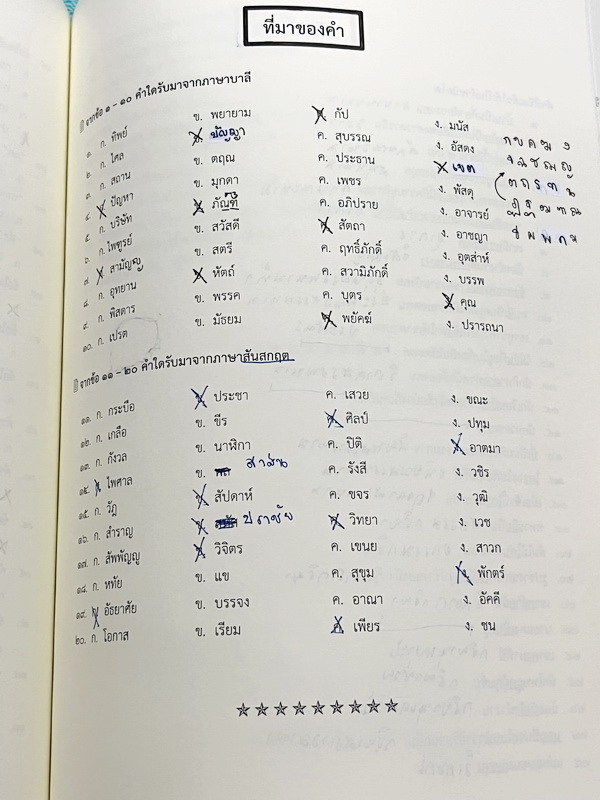 ที่มาของคำ
จากข้อ ๑ - ๑๐ คำใดรับมาจากภาษาบาลี
๑. ก. ทิพย์ ข. พยายาม ค. กัป ง. มนัส
๒. ก. ไศล ข. ปัญญา ค. สุบรรณ ง. อัสดง
๓. ก. สถาน ข. ดฤณ ค. ประธาน ง. เขต
๔. ก. ปัญหา ข. มุกดา ค. เพชร ง. พัสดุ
๕. ก. บริษัท ข. ภัณฑ์ ค. อภิปราย ง. อาจารย์
๖. ก. ไพฑูรย์ ข. สวัสดี ค. สัตถา ง. อาชญา
๗. ก. สามัญ ข. สตรี ค. ฤทธิ์ภักดิ์ ง. อุตส่าห์
๘. ก. อุทยาน ข. หัตถ์ ค. สวามิภักดิ์ ง. บรรพ
๙. ก. พิสดาร ข. พรรค ค. บุตร ง. คุณ
๑๐. ก. เปรต ข. มัธยม ค. พยัคฆ์ ง. ปรารถนา
จากข้อ ๑๑ - ๒๐ คำใดรับมาจากภาษาสันสกฤต
๑๑. ก. กระบือ ข. ประชา ค. เสวย ง. ขณะ
๑๒. ก. เกลือ ข. ขีร ค. ศิลป์ ง. ปทุม
๑๓. ก. กังวล ข. นาฬิกา ค. ปิติ ง. อาตมา
๑๔. ก. ไพศาล ข. สาสน ค. รังสี ง. วชิร
๑๕. ก. วัฏ ข. สัปดาห์ ค. ขจร ง. วุฒิ
๑๖. ก. สำราญ ข. ปราชัย ค. วิทยา ง. เวช
๑๗. ก. สัพพัญญู ข. วิจิตร ค. เขนย ง. สาวก
๑๘. ก. หทัย ข. แข ค. สุขุม ง. พักตร์
๑๙. ก. อัธยาศัย ข. บรรจง ค. อาณา ง. อัคคี
๒๐. ก. โอกาส ข. เรียม ค. เพียร ง. ชน